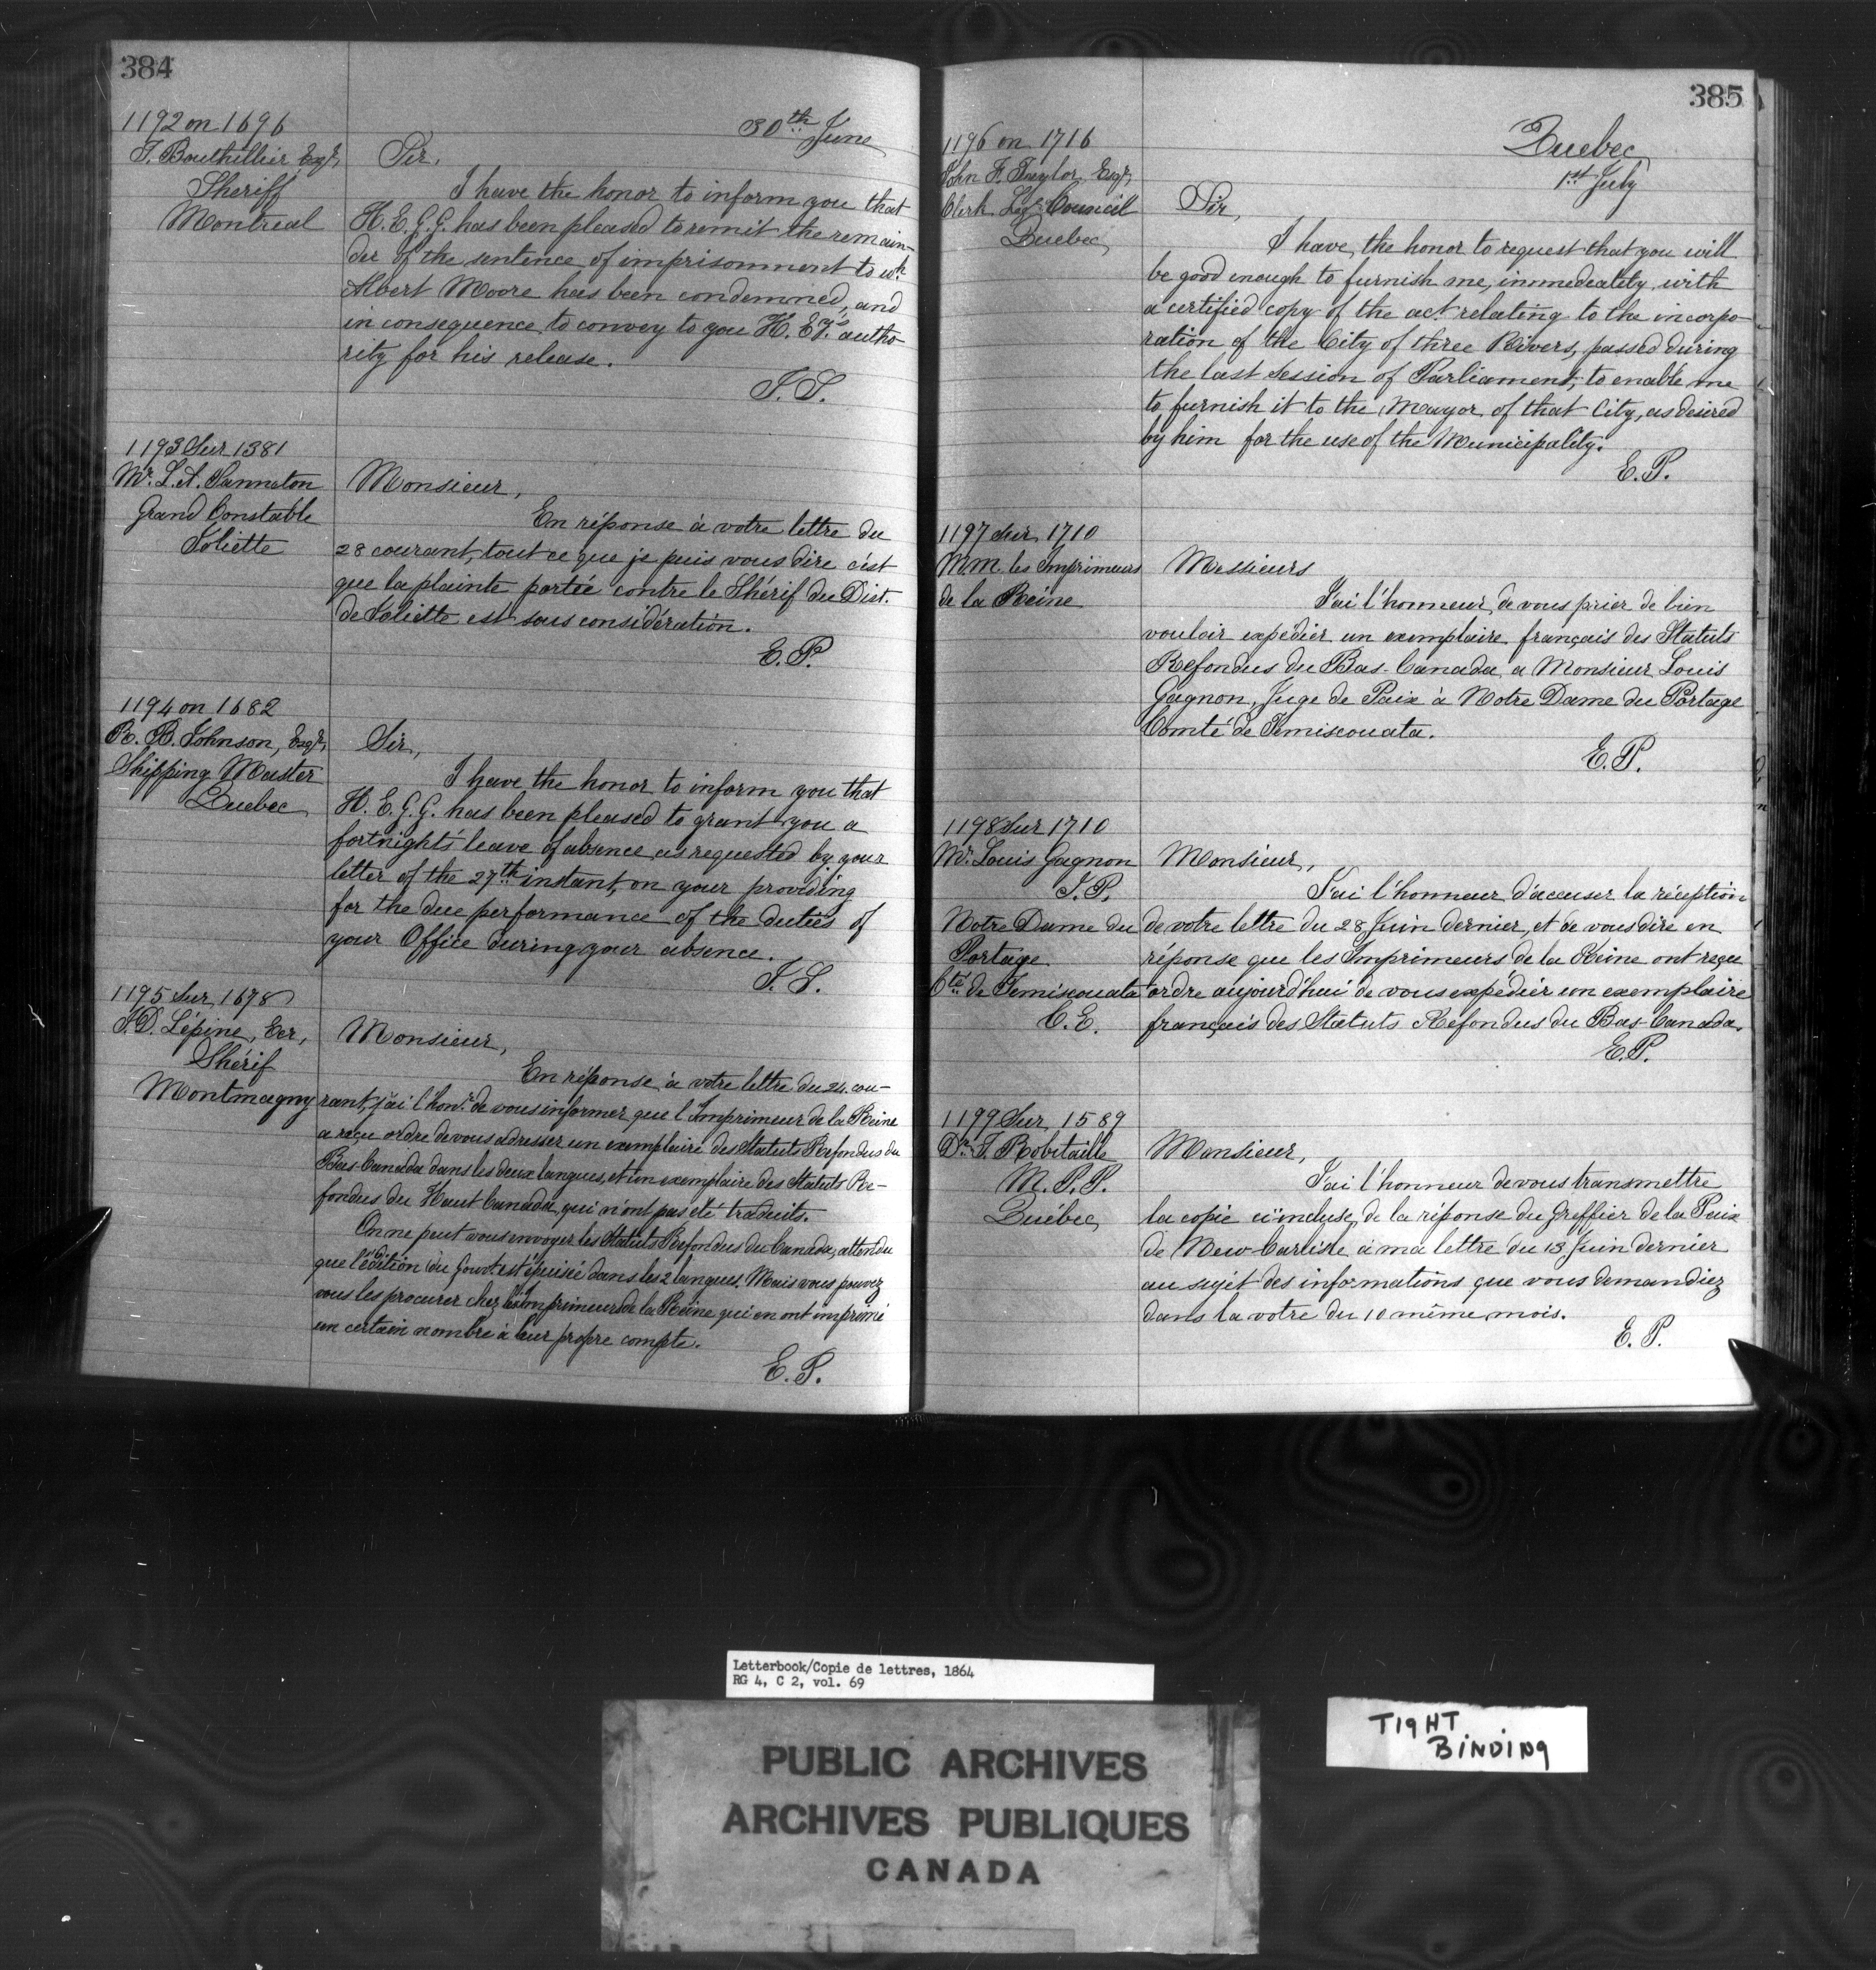 384
1192 on 1696
T. Bouthillier Esqr,
Sheriff
Montreal
30th June
Sir,
I have the honor to inform you that
H. E. G. G. has been pleased to remit the remain-
der of the sentence of imprisonment to wh.
Albert Moore has been condemned, and
in consequence to convey to you H. Ey's autho-
rity for his release.
1193 Sur 1381
Mr. L. A.
Grand Constable
Joliette
Monsieur,
En réponse à votre lettre du
28 courant, tout ce que je puis vous dire c'est
que la plainte portée contre le Shérif du Dist.
de Joliette est sous considération.
E. P.
1194 on 1682
R. B. Johnson, Esqr,
Shipping Master
Quebec
Sir,
I have the honor to inform you that
H. E. G. G. has been pleased to grant you a
fortnight's leave of absence as requested by your
letter of the 27th instant, on your providing
for the due performance of the duties of
your Office during your absence.
1195 Sur 1678
J. D. Lépine, Ecr,
Shérif
Montmagny
Monsieur,
En réponse à votre lettre du 24 cou-
rant, j'ai l'honr. de vous informer que l'Imprimeur de la Reine
a reçu ordre de vous adresser un exemplaire des Statuts Refondus du
Bas-Canada dans les deux langues, et un exemplaire des Statuts Re-
fondus du Haut Canada, qui n'ont pas été traduits.
On ne peut vous envoyer les Statuts Refondus du Canada, attendu
que l'édition du Gouvt. est épuisée dans les 2 langues. Mais vous pouvez
vous les procurer chez les Imprimeurs de la Reine qui en ont imprimé
un certain nombre à leur propre compte.
E. P.
385
1196 on 1716
John F. Taylor, Esqr,
Clerk Leg. Council
Quebec
Quebec
1st July
Sir,
I have the honor to request that you will
be good enough to furnish me, immedeatlity with
a certified copy of the act relating to the incorpo-
ration of the City of three Rivers, passed during
the last Session of Parliament, to enable me
to furnish it to the Mayor of that City, as desired
by him for the use of the Municipality.
E. P.
1197 sur 1710
MM. les Imprimeurs
de la Reine
Messieurs
J'ai l'honneur de vous prier de bien
vouloir expédier un exemplaire français des Statuts
Refondus du Bas-Canada a Monsieur Louis
Gagnon, Juge de Paix à Notre Dame du Portage
Comté de Temiscouata.
E. P.
1198 Sur 1710
Mr. Louis Gagnon
J. P.
Notre Dame du
Portage
Cté. de Temiscouata
C. E.
Monsieur,
J'ai l'honneur d'accuser la réception
de votre lettre du 28 Juin dernier, et de vous dire en
réponse que les Imprimeurs de la Reine ont reçu
ordre aujourd'hui de vous expédier un exemplaire
français des Statuts Refondus du Bas-Canada.
E. P.
1199 Sur 1589
Dr. T. Robitaille
M. P. P.
Québec
Monsieur,
J'ai l'honneur de vous transmettre
la copie ci-incluse, de la réponse du Greffier de la Paix
de New-Carlisle à ma lettre du 13 Juin dernier
au sujet des informations que vous demandiez
dans la votre du 10 même mois.
E. P.
Letterbook/Copie de lettres, 1864
RG 4, C 2, vol. 69
PUBLIC ARCHIVES
ARCHIVES PUBLIQUES
CANADA
TIGHT
BINDING